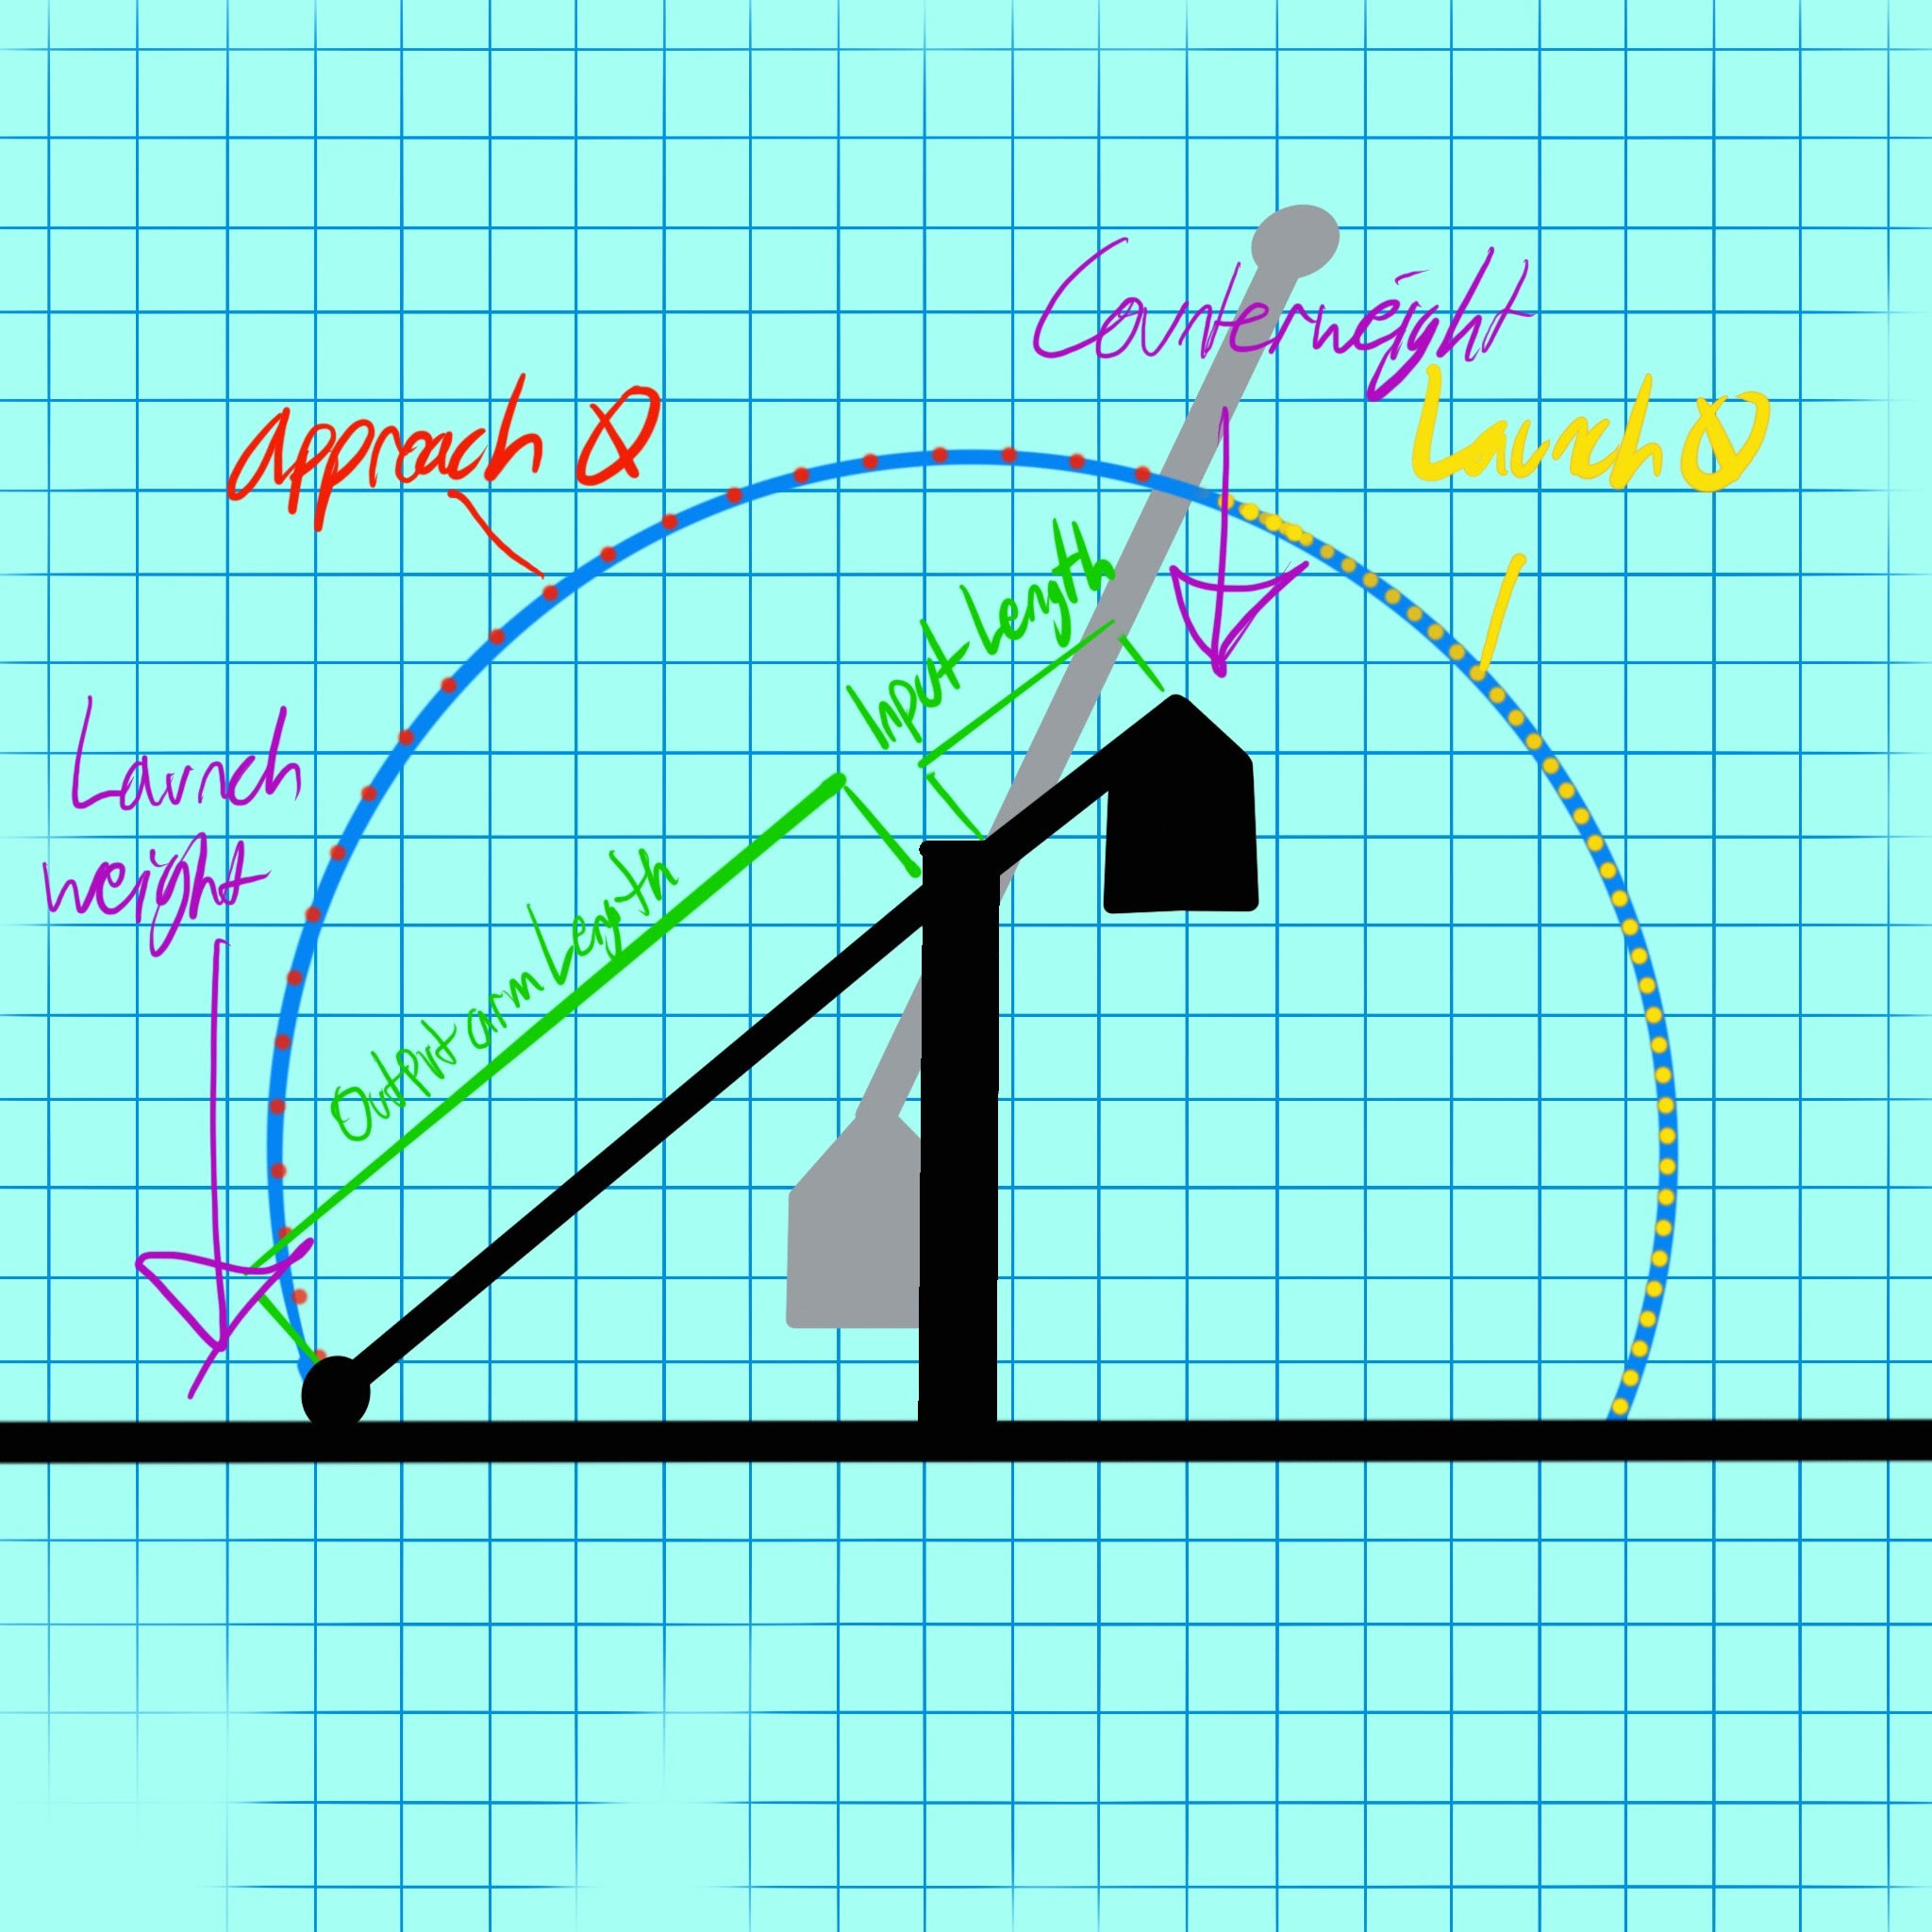 Counterweight
Launch θ
approach θ
Input Length
Launch
weight
Output arm Length